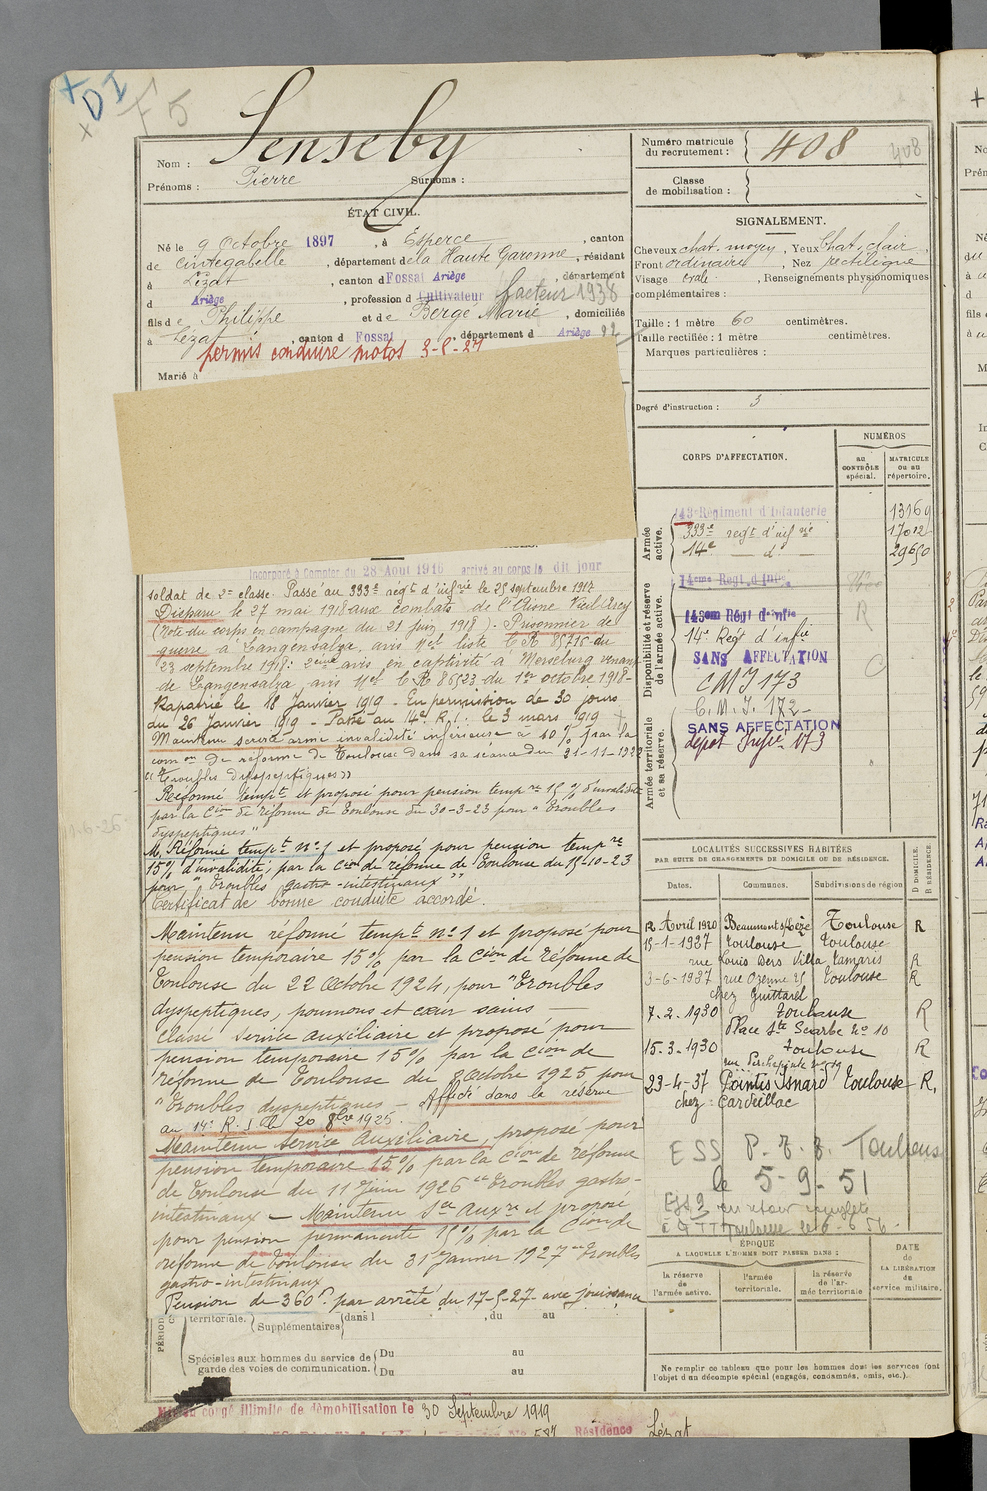 + DI
F 5
Nom : Senseby
Prénoms : Pierre Surnoms :
Numéro matricule du recrutement : 408 408
Classe de mobilisation :
ÉTAT CIVIL.
Né le 9 Octobre 1897, à Esperce, canton
de Cintegabelle, département de la Haute Garonne, résidant
à Lézat, canton d Fossat Ariège, département
d Ariège, profession d Cultivateur facteur 1938
fils de Philippe et de Berge Marie, domiciliés
à Lézat, canton d Fossat, département d Ariège 12
permis conduire motos
Marié à
SIGNALEMENT.
Cheveux chat. moyen, Yeux Chat. clair,
Front ordinaire, Nez rectiligne
Visage ovale, Renseignements physionomiques
complémentaires :
Taille : 1 mètre 60 centimètres.
Taille rectifiée : 1 mètre centimètres.
Marques particulières :
Degré d'instruction : 3
CORPS D'AFFECTATION.
NUMÉROS
au CONTRÔLE spécial.
MATRICULE ou au répertoire.
Armée active.
143e Régiment d'Infanterie 13169
333e regt d'inf rie 17012
14e — d° 29650
Disponibilité et réserve de l'armée active.
14eme Regt d'Infie
143em Régt d'Infie R
14e Regt d'infie
SANS AFFECTATION
CMI 173
Armée territoriale et sa réserve.
C.M.I. 172
SANS AFFECTATION
dépot Infie 173
Incorporé à Compter du 28 Aout 1916 arrivé au corps le dit jour
soldat de 2e classe. Passé au 333e regt d'infrie le 25 septembre 1917
Disparu le 27 mai 1918 aux combats de l'Aisne Vieil Arcy
(Note du corps en campagne du 21 Juin 1918). Prisonnier de
guerre à Langensalza, avis Mel liste C.R. du
23 septembre 1918: 2eme avis en captivité à Merseburg venant
de Langensalza, avis Mel C.R. 86523 du 1er octobre 1918-
Rapatrié le 18 Janvier 1919 - En permission de 30 jours
du 26 Janvier 1919 - Passé au 14e R.I. le 3 mars 1919
Maintenu service armé invalidité inférieure à 10 % par la
com on de réforme de Toulouse dans sa séance du 21-11-1922
"(Troubles dyspeptiques)"
Réformé tempre et proposé pour pension tempre 15 % d'invalidité
par la Cion de réforme de Toulouse du 30-3-23 pour "Troubles
dyspeptiques"
M. Réformé tempre n°1 et proposé pour pension tempre
15% d'invalidité, par la Cion de réforme de Toulouse du 15-10-23
pour "troubles gastro-intestinaux"
Certificat de bonne conduite accordé.
Maintenu réformé tempre n°1 et proposé pour
pension temporaire 15% par la Cion de réforme de
Toulouse du 22 Octobre 1924, pour "Troubles
dyspeptiques, poumons et cœur sains —
Classé service auxiliaire et proposé pour
pension temporaire 15% par la Cion de
réforme de Toulouse du 8 octobre 1925 pour
"Troubles dyspeptiques — Affecté dans la réserve
au 14e R.I. le 20 8bre 1925.
Maintenu service auxiliaire, proposé pour
pension temporaire 15% par la Cion de réforme
de Toulouse du 11 Juin 1926 "troubles gastro-
intestinaux — Maintenu Sce auxre et proposé
pour pension permanente 15% par la Cion de
réforme de Toulouse du 31 Janvier 1927 "troubles
gastro-intestinaux
Pension de 360f. par arrêté du 17-5-27 avec jouissance
territoriale. Supplémentaires dans l , du au
Spéciales aux hommes du service de garde des voies de communication.
Du au
Du au
LOCALITÉS SUCCESSIVES HABITÉES
PAR SUITE DE CHANGEMENTS DE DOMICILE OU DE RÉSIDENCE.
Dates. Communes. Subdivisions de région D DOMICILE. R RÉSIDENCE.
12 Avril 1920 Beaumont s/Lèze Toulouse R
15-1-1927 Toulouse Toulouse
rue Louis Ders Villa Tamaris R
3-6-1927 rue Ozenne 25 Toulouse R
chez Guittarel
7.2.1930 Toulouse R
Place Ste Scarbe No 10
15.3.1930 Toulouse R
rue Perchepinte no 19
23-4-37 Pointis Inard Toulouse R,
chez : Cardeillac
ESS P.T.T. Toulouse
le 5-9-51
ÉPOQUE
A LAQUELLE L'HOMME DOIT PASSER DANS :
la réserve de l'armée active.
l'armée territoriale.
la réserve de l'armée territoriale
DATE de LA LIBÉRATION du service militaire.
Ne remplir ce tableau que pour les hommes dont les services font
l'objet d'un décompte spécial (engagés, condamnés, omis, etc.).
Mis en congé illimité de démobilisation le 30 Septembre 1919
Résidence Lézat